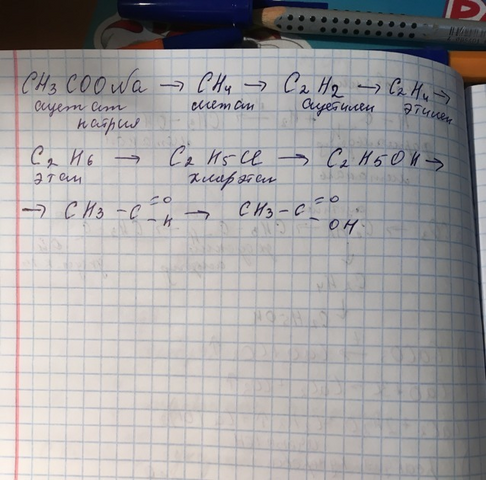 CH3COONa → CH4 → C2H2 → C2H4 →
ацетат метан ацетилен этилен
натрия
C2H6 → C2H5Cl → C2H5OH →
этан хлорэтан
→ CH3 - C =O -H → CH3 - C =O - OH